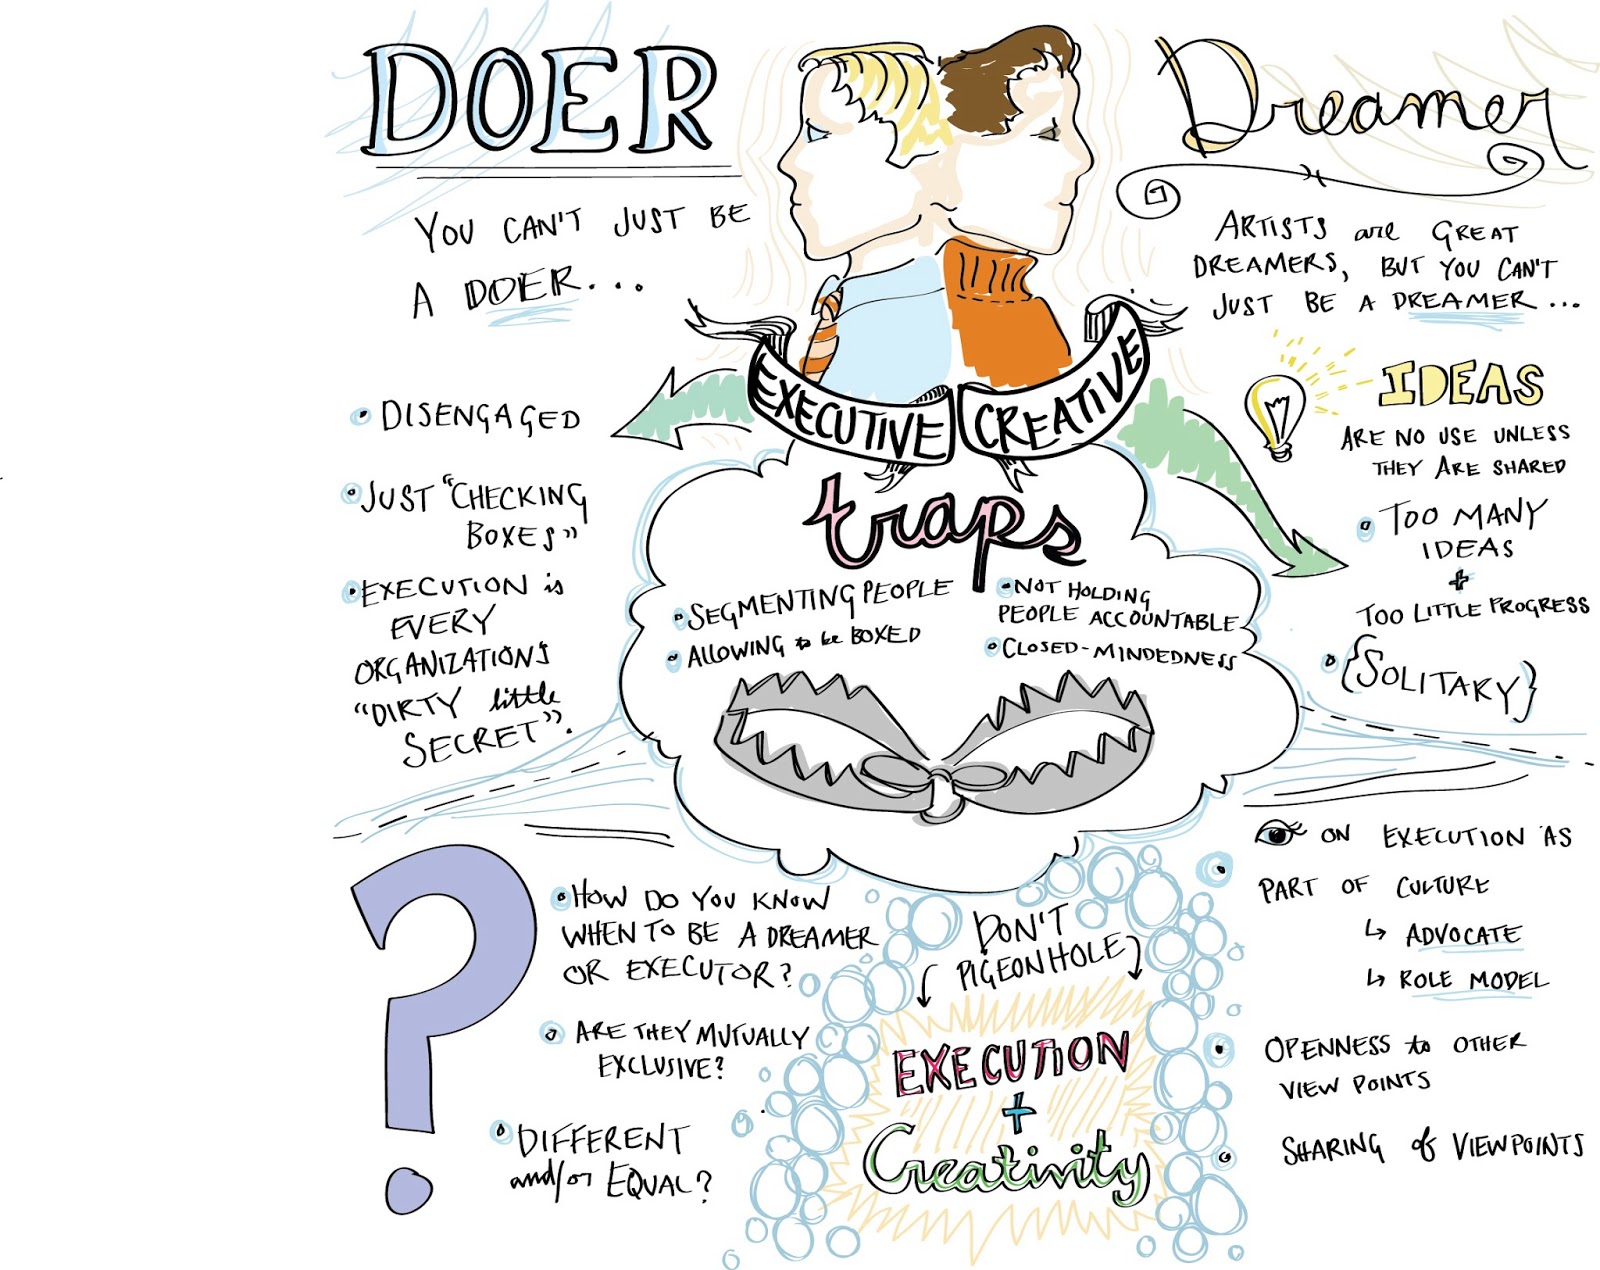 DOER
YOU CAN'T JUST BE
A DOER...
• DISENGAGED
• JUST "CHECKING
BOXES"
• EXECUTION is
EVERY
ORGANIZATIONS
"DIRTY little
SECRET".
EXECUTIVE
CREATIVE
Dreamer
ARTISTS are GREAT
DREAMERS, BUT YOU CAN'T
JUST BE A DREAMER...
IDEAS
ARE NO USE UNLESS
THEY ARE SHARED
• TOO MANY
IDEAS
+
TOO LITTLE PROGRESS
• {SOLITARY}
traps
• SEGMENTING PEOPLE
• ALLOWING to be BOXED
• NOT HOLDING
PEOPLE ACCOUNTABLE
• CLOSED-MINDEDNESS
?
• HOW DO YOU KNOW
WHEN TO BE A DREAMER
OR EXECUTOR?
• ARE THEY MUTUALLY
EXCLUSIVE?
• DIFFERENT
and/or EQUAL?
DON'T
PIGEONHOLE
EXECUTION
+
Creativity
• ON EXECUTION AS
PART OF CULTURE
↳ ADVOCATE
↳ ROLE MODEL
• OPENNESS to OTHER
VIEW POINTS
• SHARING of VIEWPOINTS